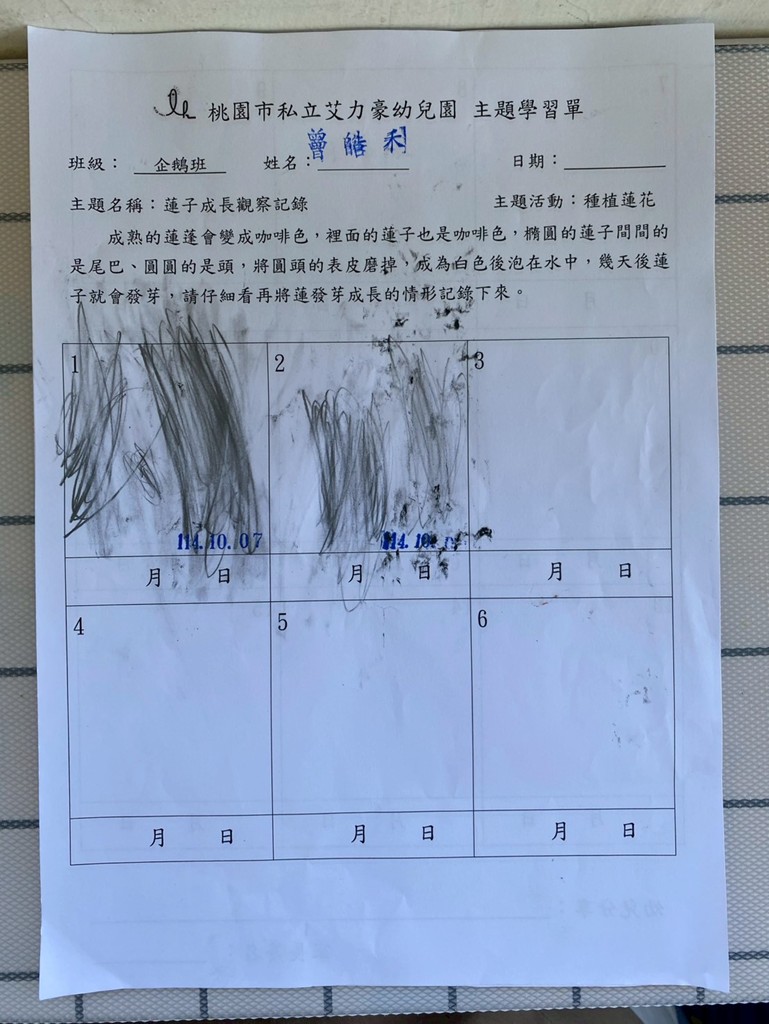 桃園市私立艾力豪幼兒園 主題學習單
班級： 企鵝班 姓名： 曾皓禾 日期：
主題名稱：蓮子成長觀察記錄 主題活動：種植蓮花
成熟的蓮蓬會變成咖啡色，裡面的蓮子也是咖啡色，橢圓的蓮子間間的
是尾巴、圓圓的是頭，將圓頭的表皮磨掉，成為白色後泡在水中，幾天後蓮
子就會發芽，請仔細看再將蓮發芽成長的情形記錄下來。
1 2 3
114.10.07 114.10.
月 日 月 日 月 日
4 5 6
月 日 月 日 月 日